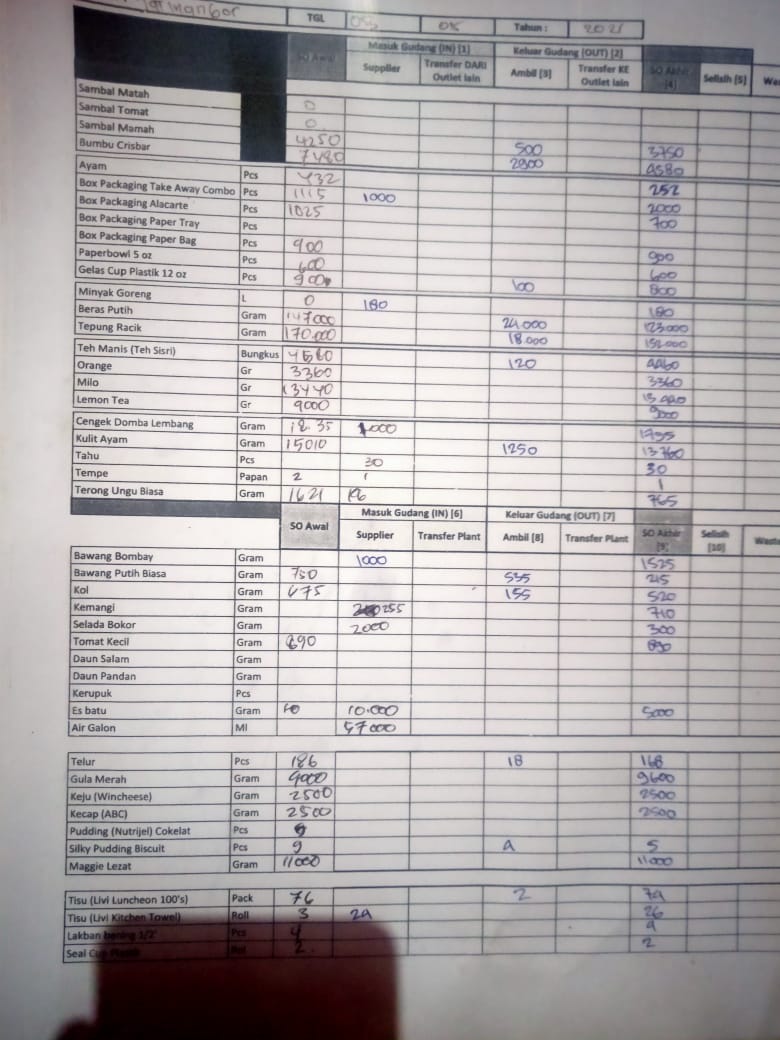 TGL 05 Tahun : 2021
Masuk Gudang (IN) [1] Keluar Gudang (OUT) [2]
SO Awal Supplier Transfer DARI Outlet lain Ambil [3] Transfer KE Outlet lain SO Akhir [4] Selisih [5]
Sambal Matah 0
Sambal Tomat 0
Sambal Mamah 4250 500 3750
Bumbu Crisbar 7480 2900 4580
Ayam Pcs 432 252
Box Packaging Take Away Combo Pcs 1115 1000 2000
Box Packaging Alacarte Pcs 1025 700
Box Packaging Paper Tray Pcs
Box Packaging Paper Bag Pcs 900 900
Paperbowl 5 oz Pcs 600 600
Gelas Cup Plastik 12 oz Pcs 900 100 800
Minyak Goreng L 0 180 180
Beras Putih Gram 147000 24.000 123.000
Tepung Racik Gram 170.000 18.000 152.000
Teh Manis (Teh Sisri) Bungkus 4580 120 4460
Orange Gr 3360 3360
Milo Gr 13440 13440
Lemon Tea Gr 9000 9000
Cengek Domba Lembang Gram 1000
Kulit Ayam Gram 15010 1250 13760
Tahu Pcs 30 30
Tempe Papan 2 1
Terong Ungu Biasa Gram 1621 765
Masuk Gudang (IN) [6] Keluar Gudang (OUT) [7]
SO Awal Supplier Transfer Plant Ambil [8] Transfer Plant SO Akhir [9] Selisih [10]
Bawang Bombay Gram 1000 1525
Bawang Putih Biasa Gram 750 535 215
Kol Gram 675 155 520
Kemangi Gram 255 710
Selada Bokor Gram 2000 300
Tomat Kecil Gram 890 890
Daun Salam Gram
Daun Pandan Gram
Kerupuk Pcs
Es batu Gram 10.000 5000
Air Galon Ml 57000
Telur Pcs 186 18 168
Gula Merah Gram 9600
Keju (Wincheese) Gram 2500 2500
Kecap (ABC) Gram 2500 2500
Pudding (Nutrijel) Cokelat Pcs
Silky Pudding Biscuit Pcs 9 4 5
Maggie Lezat Gram 11000 11000
Tisu (Livi Luncheon 100's) Pack 76 2 74
Tisu (Livi Kitchen Towel) Roll 3 26
Lakban bening 1/2' Pcs 4 4
Seal Cup 2 2